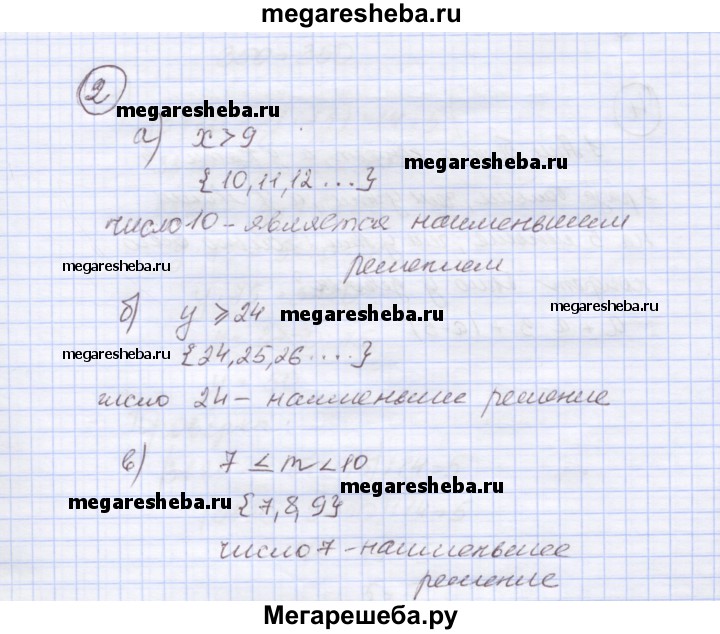 megaresheba.ru
2
megaresheba.ru
а) x > 9
megaresheba.ru
{10, 11, 12 ...}
число 10 - является наименьшим
megaresheba.ru
решением
megaresheba.ru
б) y ⩾ 24
megaresheba.ru
megaresheba.ru
{24, 25, 26 ....}
число 24 - наименьшие решение
в) 7 ≤ m < 10
megaresheba.ru
megaresheba.ru
{7, 8, 9}
число 7 - наименьшее
решение
Мегарешеба.ру